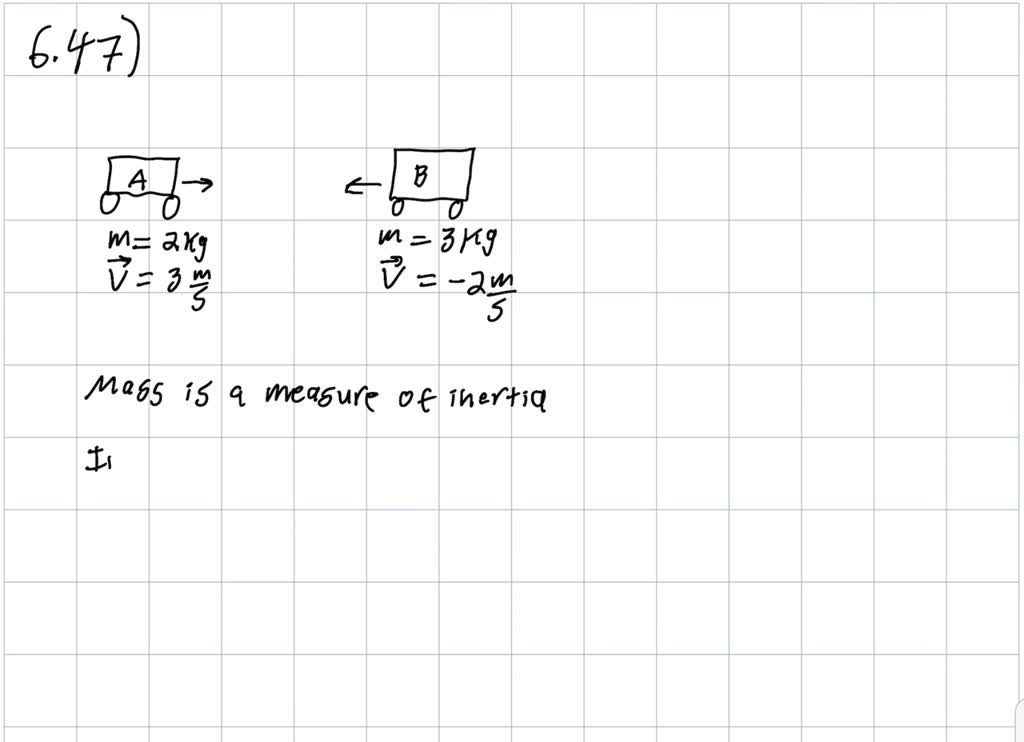 6.47)
A B
m = 2kg m = 3kg
V⃗ = 3 m/s V⃗ = -2 m/s
Mass is a measure of inertia